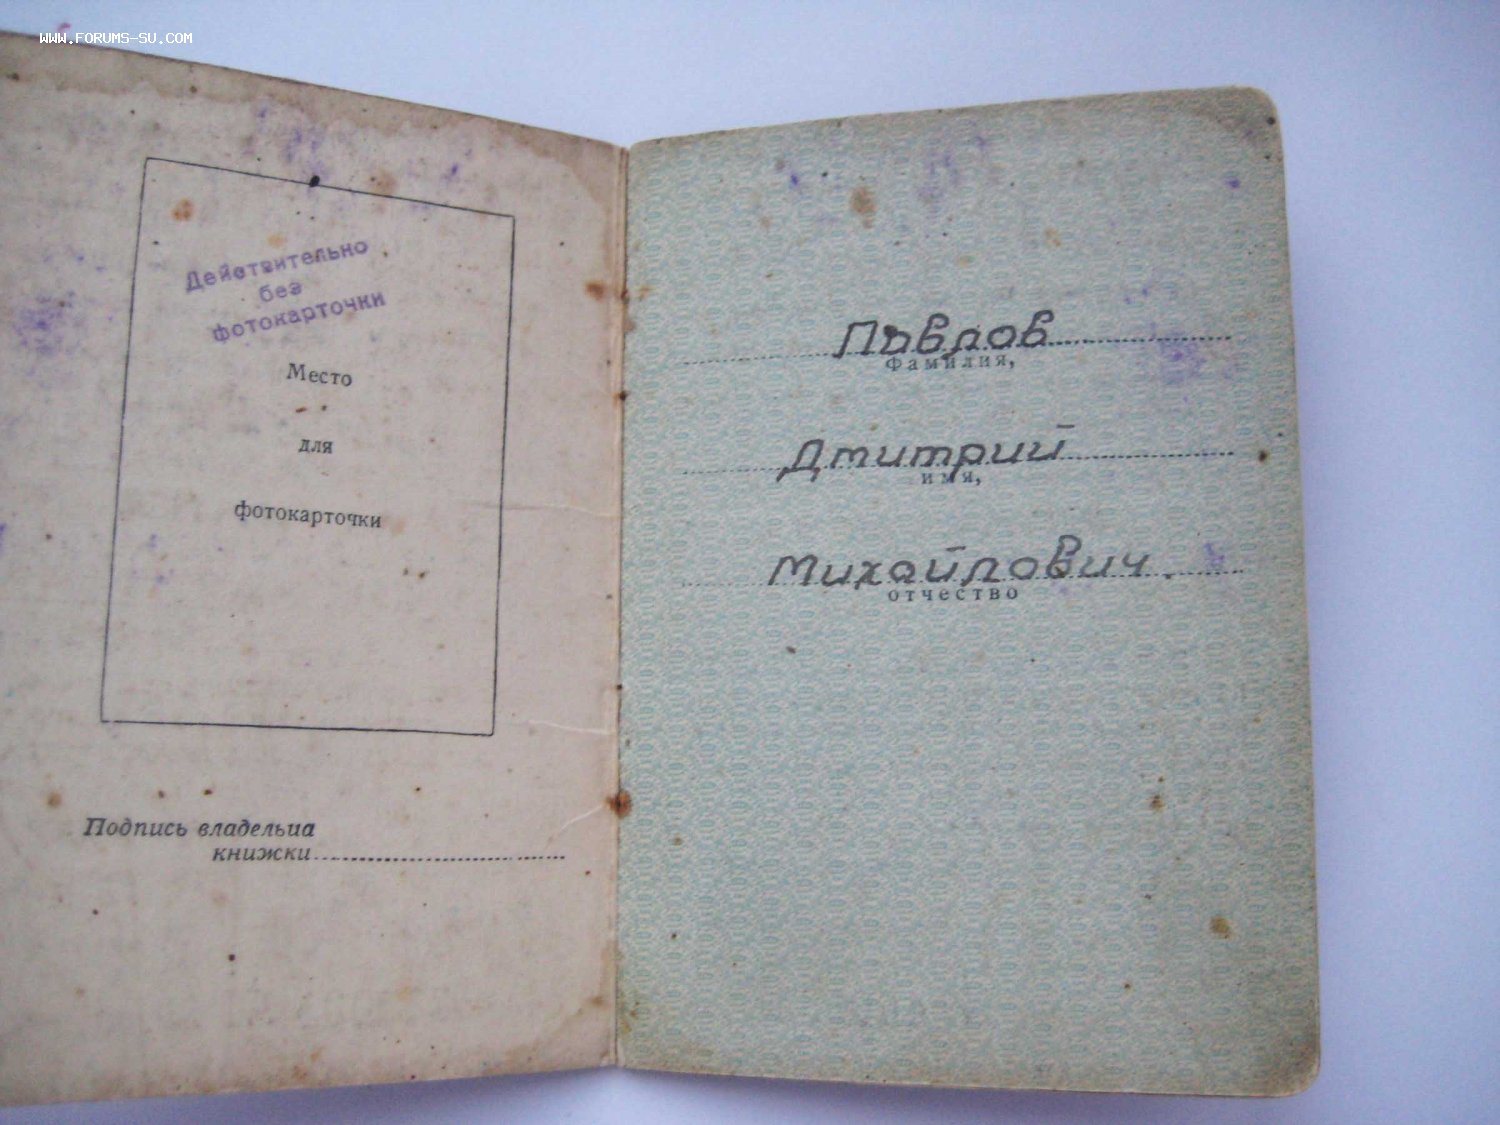 WWW.FORUMS-SU.COM
Действительно
без
фотокарточки
Место
для
фотокарточки
Подпись владельца
книжки
Павлов
Фамилия,
Дмитрий
имя,
Михайлович.
отчество